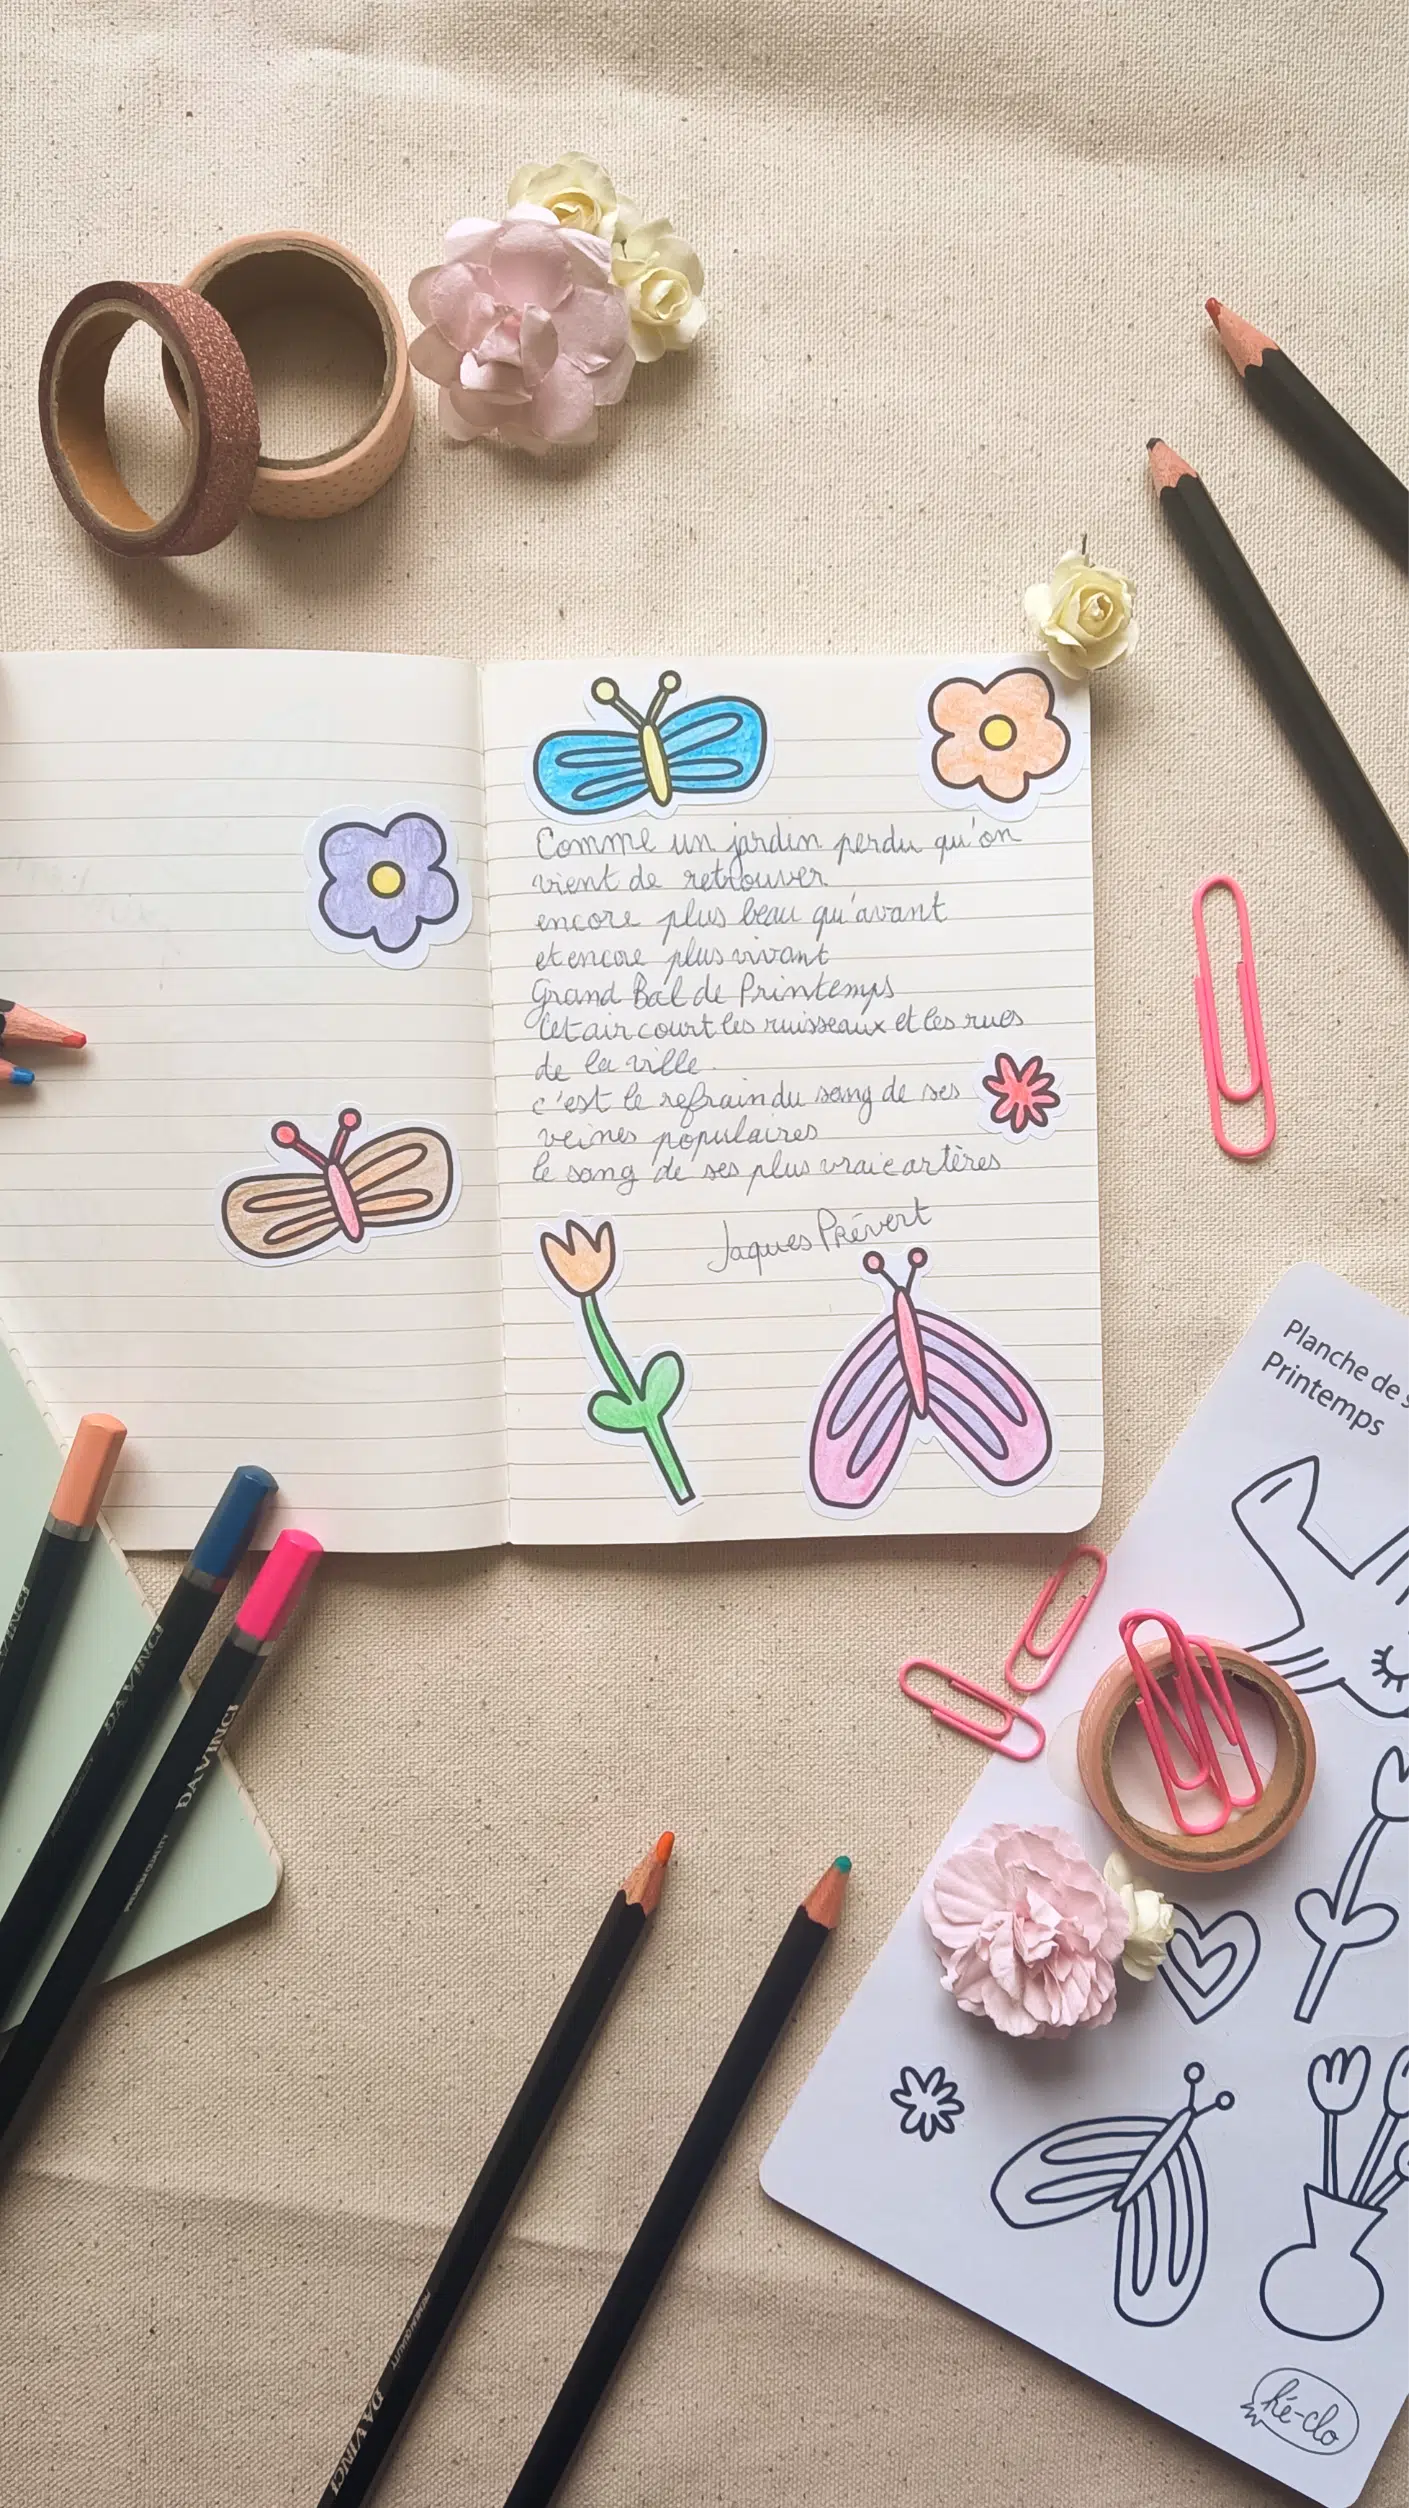 Comme un jardin perdu qu'on
vient de retrouver
encore plus beau qu'avant
et encore plus vivant
Grand Bal de Printemps
Cet air court les ruisseaux et les rues
de la ville.
c'est le refrain du sang de ses
veines populaires
le sang de ses plus vraie artères
Jaques Prévert
Planche de s
Printemps
DAVINCI
DAVINCI
DAVINCI
hé-clo